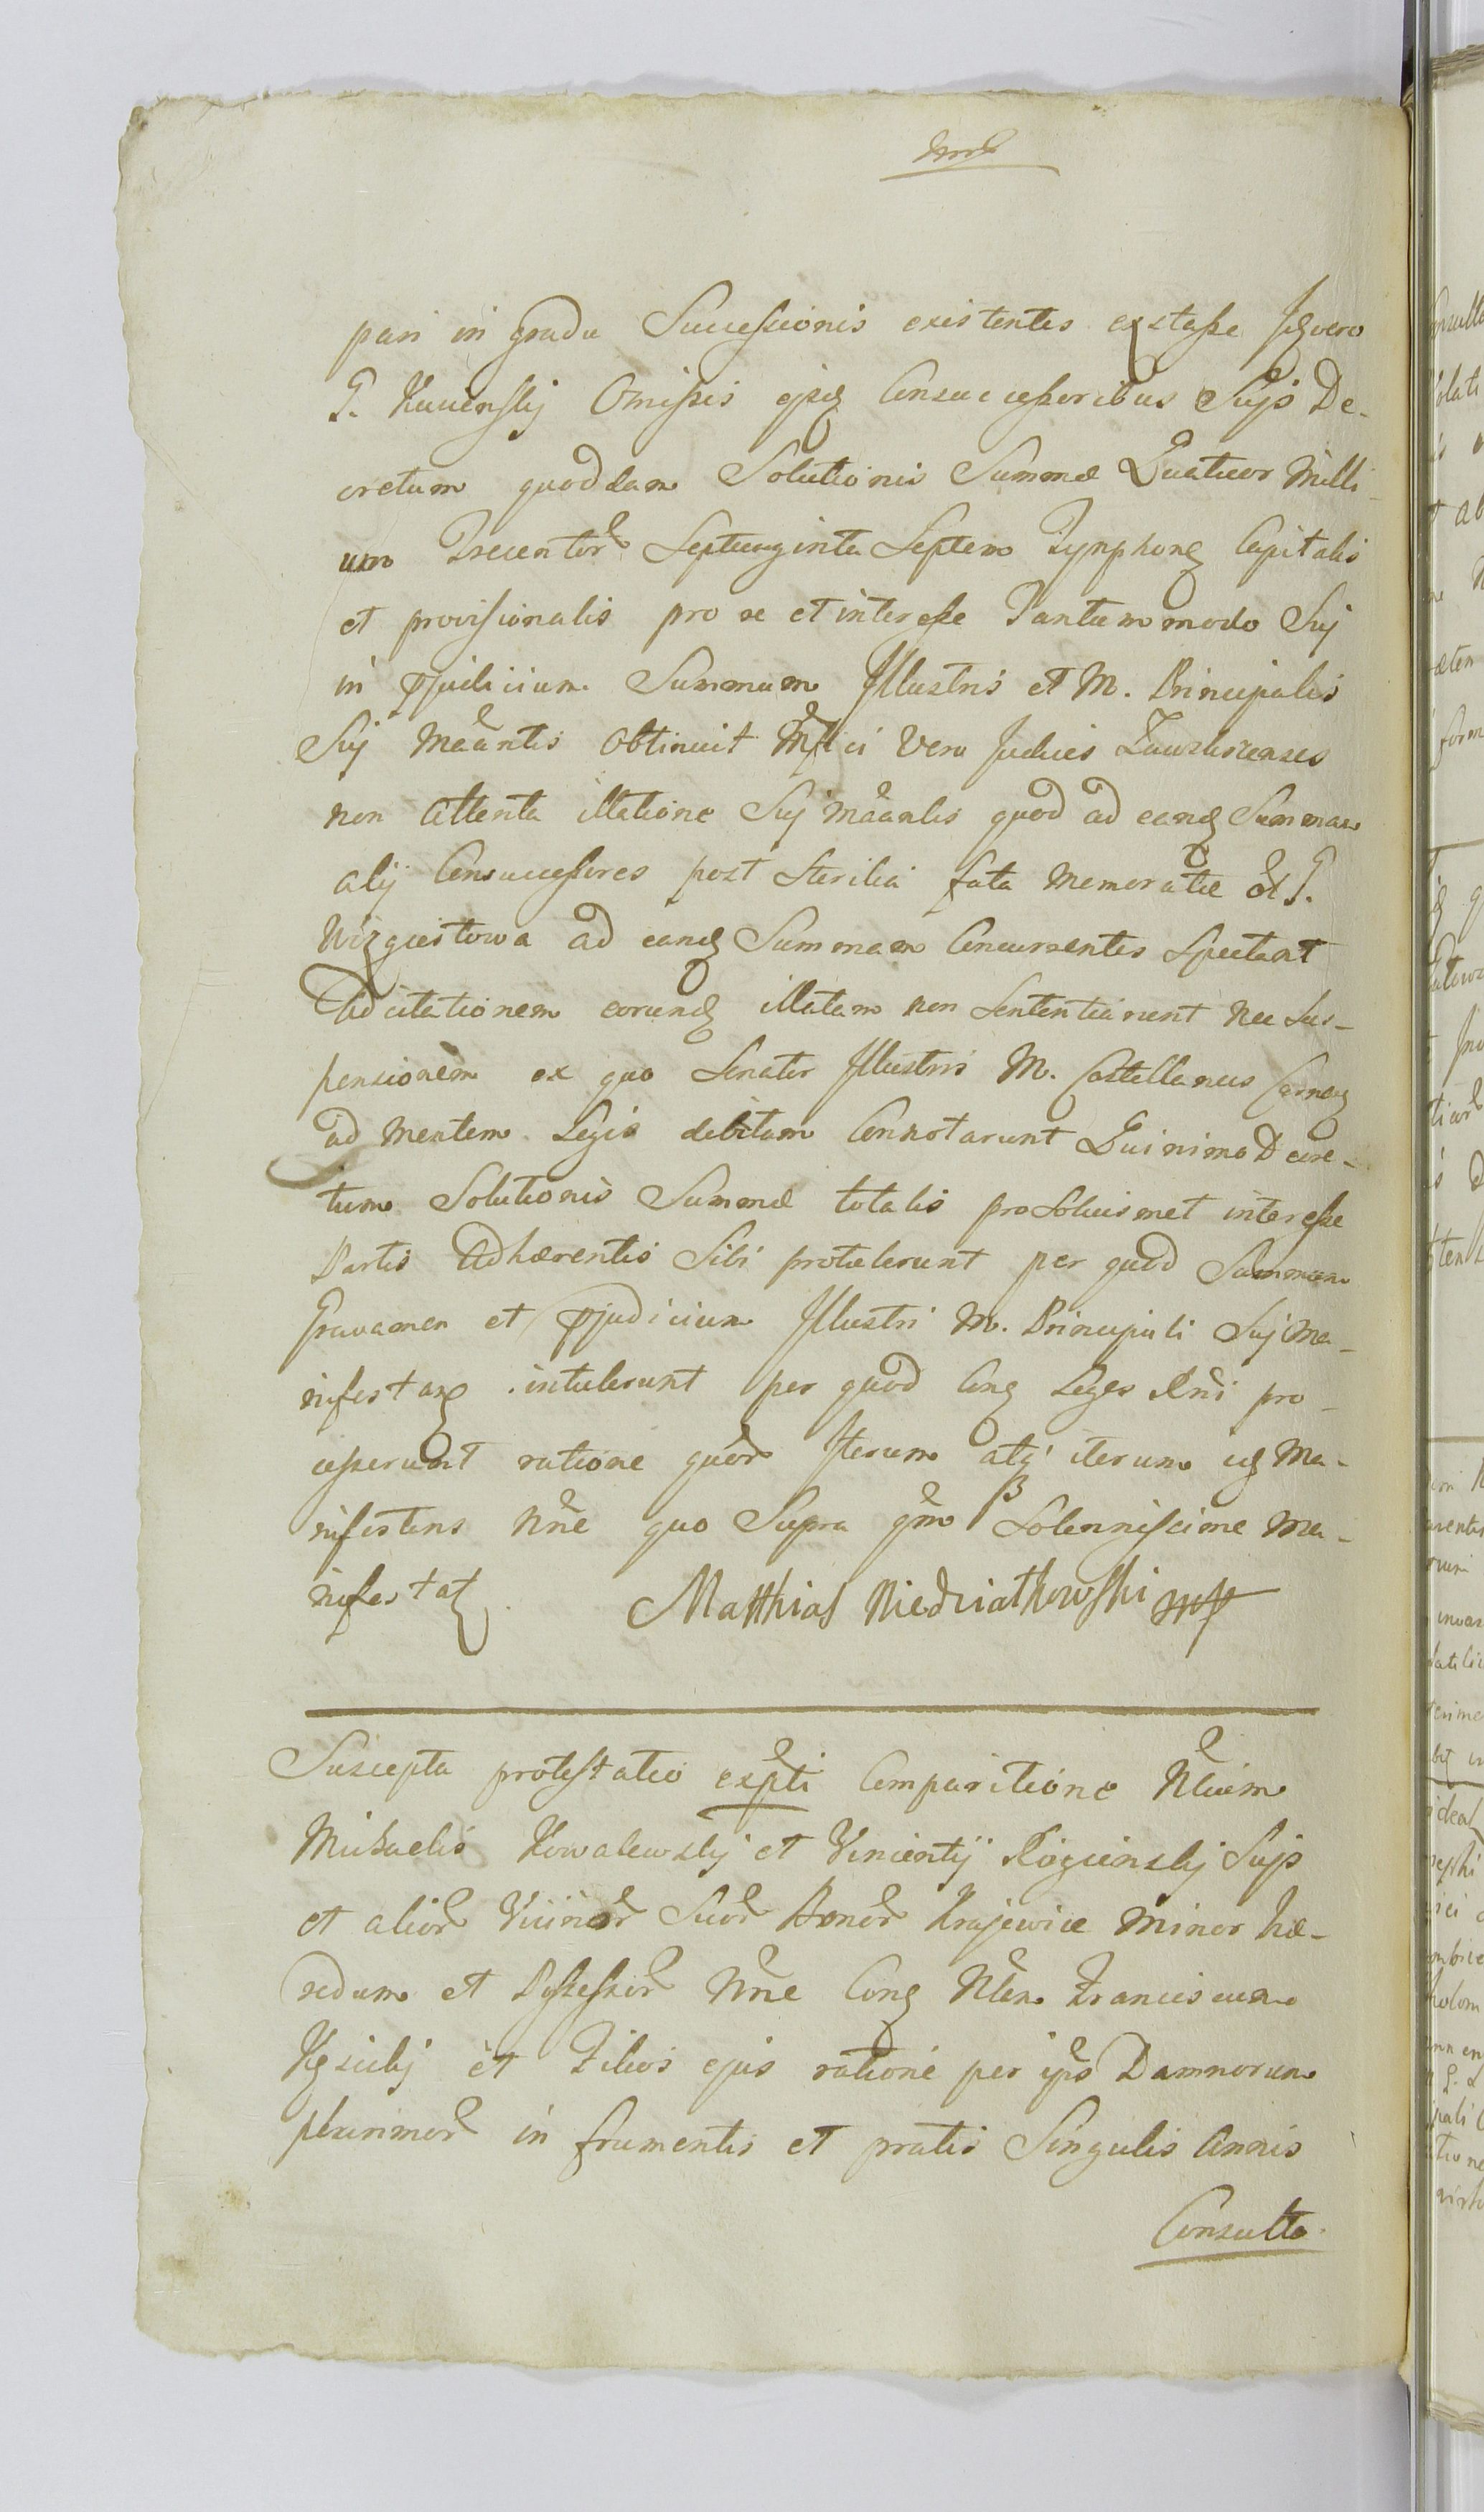 pari in gradu Successionis existentes extasse
G. Kuczenskij Omissis Consuccessoribus Sujs De-
cretum quoddam Solutionis Summæ Quatuor Milli-
um Trecentor Septuaginta Septem Tymphonq Capitalis
et provisionalis pro se et interesse Tantummodo Suj
in pjudicium Summum Illustris et M. Principalis
Suj Maantis obtinuit Mfici Vero Judices
non attenta illatione Suj quod ad eandq Summam
alij Consuccessores post sterilia fata memoratæ ol G.
Wizgiestowa ad eandq Summam Concurrentes Spectant
Adcitationem eorundq illatam non Sententiarunt nec Sus-
pensionem ex quo Senator Illustris M. Castellanus
ad mentem Legis debitam Connotarunt Quinimo Decre-
tum Solutionis Summæ totalis pro Soliusmet interesse
Partis Adhærentis Sibi protulerunt per quod Summum
Gravamen et pjudicium Illustri M. Principali Suj Ma-
nifestanq intulerunt per quod Conq Leges Rni pro-
cesserunt ratione quor Iterum atq iterum eq Ma-
nifestans Nne quo Supra qm Solennissime Ma-
nifestat Matthias Niedziatkowski mp
Suscepta protestatio expti Comparitione Nlium
Michaelis Kowalewskj et Vincentij Rogienskj Sujs
et alior Vicinor Suor Bonor Krajewice Minor hæ-
redum et Possessor Nne Conq Nlem Franciscum
et Filios ejus ratione per ips Damnorum
plurimor in frumentis et pratis Singulis Annis
Consulto